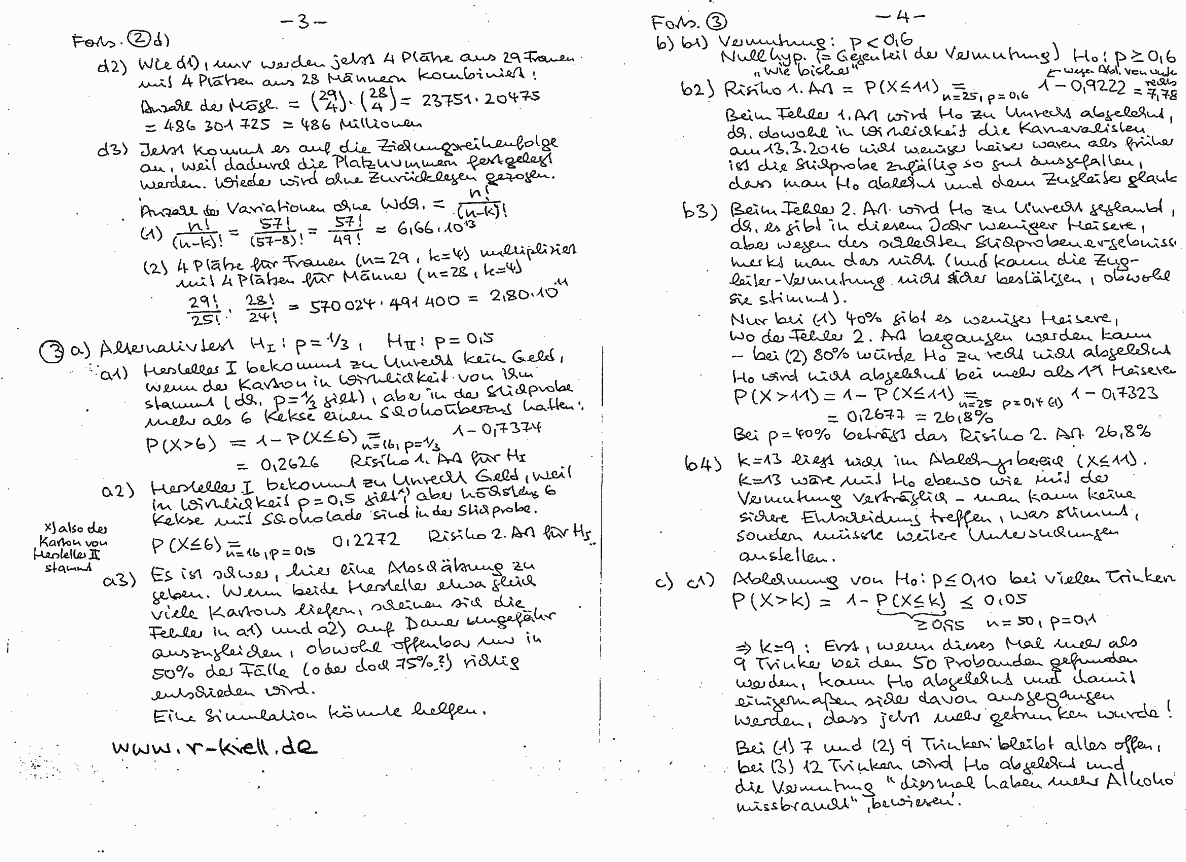 -3-
Forts. ② d)
d2) Wie d1), nur werden jetzt 4 Plätze aus 29 Frauen
mit 4 Plätzen aus 28 Männern kombiniert!
Anzahl der Mögl. = (29 4) · (28 4) = 23751 · 20475
= 486 301 725 = 486 Millionen
d3) Jetzt kommt es auf die Ziehungsreihenfolge
an, weil dadurch die Platznummern festgelegt
werden. Wieder wird ohne Zurücklegen gezogen.
Anzahl der Variationen ohne Wdh. = n!/(n-k)!
(1) n!/(n-k)! = 57!/(57-8)! = 57!/49! = 6,66·10¹³
(2) 4 Plätze für Frauen (n=29, k=4) multipliziert
mit 4 Plätzen für Männer (n=28, k=4)
29!/25! · 28!/24! = 570 024 · 491 400 = 2,80·10¹¹
③ a) Alternativtest H_I: p = 1/3, H_II: p = 0,5
a1) Hersteller I bekommt zu Unrecht kein Geld,
wenn der Karton in Wirklichkeit von ihm
stammt (dh. p=1/3 gilt), aber in der Stichprobe
mehr als 6 Kekse einen Schokoüberzug hatten:
P(X>6) = 1-P(X≤6) = n=16, p=1/3 1-0,7374
= 0,2626 Risiko 1. Art für H_I
a2) Hersteller I bekommt zu Unrecht Geld, weil
in Wirklichkeit p=0,5 gilt x) aber höchstens 6
Kekse mit Schokolade sind in der Stichprobe.
x) also der
Karton von
Hersteller II
stammt
P(X≤6) = n=16, p=0,5 0,2272 Risiko 2. Art für H_I
a3) Es ist schwer, hier eine Abschätzung zu
geben. Wenn beide Hersteller etwa gleich
viele Kartons liefern, scheinen sich die
Fehler in a1) und a2) auf Dauer ungefähr
auszugleichen, obwohl offenbar nur in
50% der Fälle (oder doch 75%?) richtig
entschieden wird.
Eine Simulation könnte helfen.
www.r-krell.de
-4-
Forts. ③
b) b1) Vermutung: p < 0,6
Nullhyp. (= Gegenteil der Vermutung) H₀: p ≥ 0,6
"wie bisher"
b2) Risiko 1. Art = P(X≤11) = n=25, p=0,6 1-0,9222 = 7,78
Beim Fehler 1. Art wird H₀ zu Unrecht abgelehnt,
dh. obwohl in Wirklichkeit die Karnevalisten
am 13.3.2016 nicht weniger heiser waren als früher
ist die Stichprobe zufällig so gut ausgefallen,
dass man H₀ ablehnt und dem Zugleiter glaubt
b3) Beim Fehler 2. Art wird H₀ zu Unrecht geglaubt,
dh. es gibt in diesem Jahr weniger Heisere,
aber wegen des schlechten Stichprobenergebnisses
merkt man das nicht (und kann die Zug-
leiter-Vermutung nicht sicher bestätigen, obwohl
sie stimmt).
Nur bei (1) 40% gibt es weniger Heisere,
wo der Fehler 2. Art begangen werden kann
– bei (2) 80% würde H₀ zu recht nicht abgelehnt
H₀ wird nicht abgelehnt bei mehr als 11 Heiseren
P(X>11) = 1-P(X≤11) = n=25 p=0,4 (1) 1-0,7323
= 0,2677 = 26,8%
Bei p=40% beträgt das Risiko 2. Art 26,8%
b4) k=13 liegt nicht im Ablehnungsbereich (X≤11).
k=13 wäre mit H₀ ebenso wie mit der
Vermutung verträglich – man kann keine
sichere Entscheidung treffen, was stimmt,
sondern müsste weitere Untersuchungen
anstellen.
c) c1) Ablehnung von H₀: p≤0,10 bei vielen Trinkern
P(X>k) = 1-P(X≤k) ≤ 0,05
≥0,95 n=50, p=0,1
⇒ k=9: Erst, wenn dieses Mal mehr als
9 Trinker bei den 50 Probanden gefunden
werden, kann H₀ abgelehnt und damit
einigermaßen sicher davon ausgegangen
werden, dass jetzt mehr getrunken wurde!
Bei (1) 7 und (2) 9 Trinkern bleibt alles offen,
bei (3) 12 Trinkern wird H₀ abgelehnt und
die Vermutung "diesmal haben mehr Alkohol
missbraucht" 'bewiesen'.